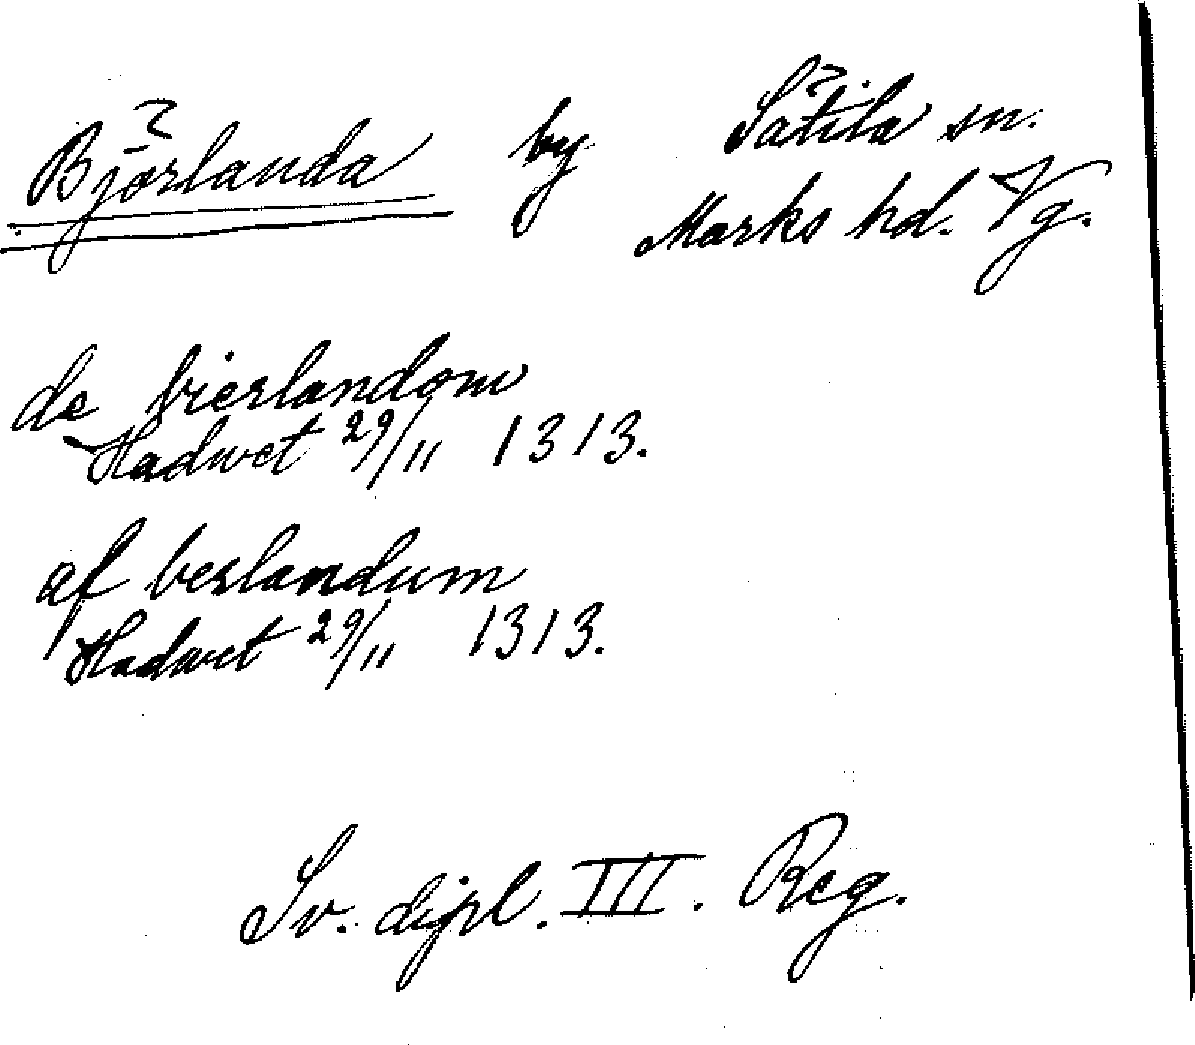 Björlanda by Sätila sn.
Marks hd. Vg.
de bierlandom
Hadwet 29/11 1313.
af berlandum
Hadwet 29/11 1313.
Sv. dipl. III. Reg.